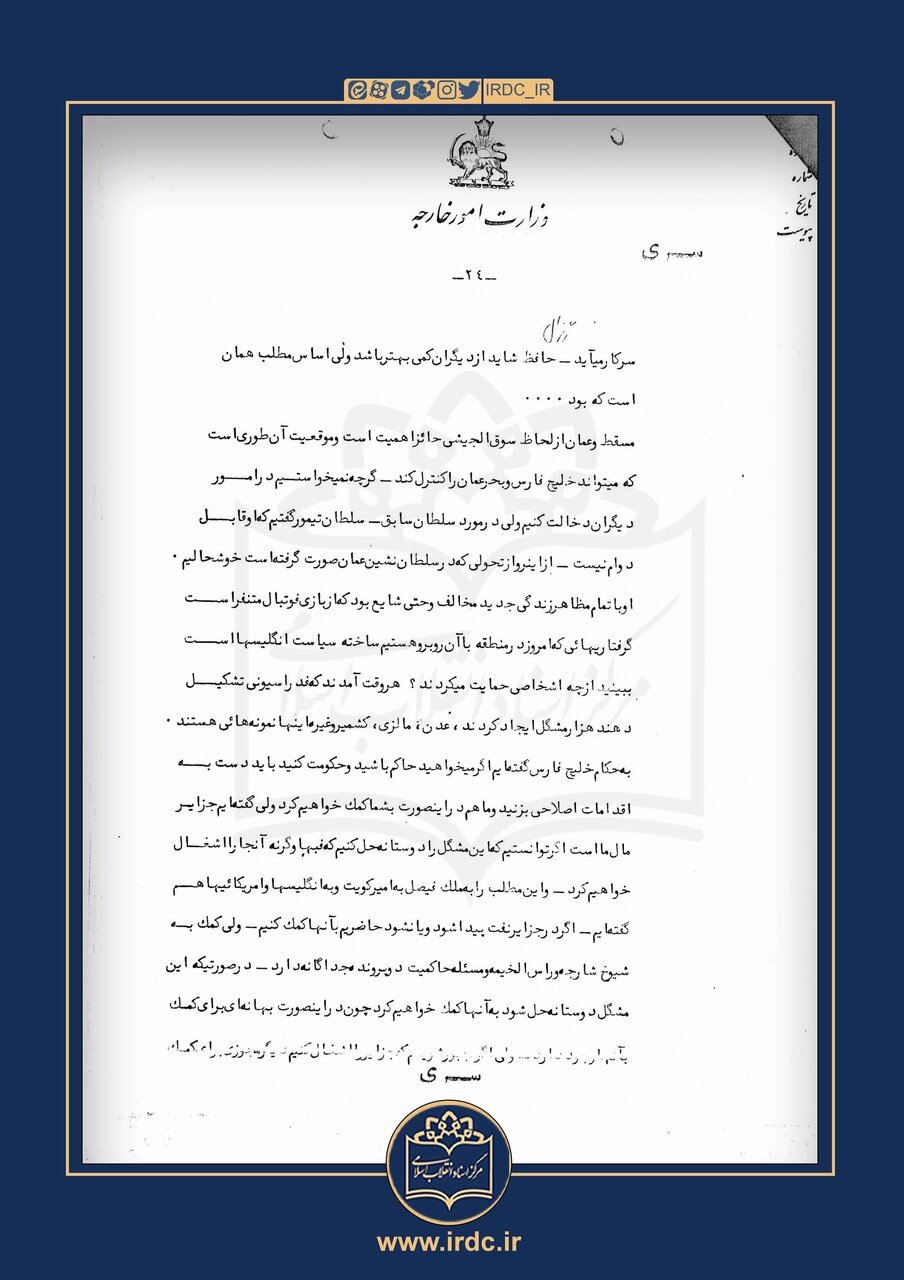 IRDC_IR
شماره
تاریخ
پیوست
وزارت امور خارجه
ســری
ــ۲٤ــ
ژنرال
سرکار میآید ــ حافظ شاید از دیگران کمی بهتر باشد ولی اساس مطلب همان
است که بود ۰۰۰۰
مسقط و عمان از لحاظ سوق الجیشی حائز اهمیت است و موقعیت آن طوری است
که میتواند خلیج فارس و بحر عمان را کنترل کند ــ گرچه نمیخواستیم در امـــور
دیگران دخالت کنیم ولی در مورد سلطان سابق ــ سلطان تیمور گفتیم که او قابـــل
دوام نیست ــ از اینرو از تحولی که در سلطان نشین عمان صورت گرفته است خوشحالیم ۰
او با تمام مظاهر زندگی جدید مخالف و حتی شایع بود که از بازی فوتبال متنفر اســت
گرفتاریهائی که امروز در منطقه با آن روبرو هستیم ساخته سیاست انگلیسها اســت
ببینید از چه اشخاصی حمایت میکردند ؟ هر وقت آمدند که فدراسیونی تشکیـــل
دهند هزار مشگل ایجاد کردند ، عدن ، مالزی ، کشمیر و غیره اینها نمونه هائی هستند ۰
به حکام خلیج فارس گفته ایم اگر میخواهید حاکم باشید و حکومت کنید باید دست بـــه
اقدامات اصلاحی بزنید و ما هم در اینصورت بشما کمك خواهیم کرد ولی گفته ایم جزایـر
مال ما است اگر توانستیم که این مشگل را دوستانه حل کنیم که فبها وگرنه آنجا را اشغــال
خواهیم کرد ــ و این مطلب را به ملك فیصل به امیر کویت و به انگلیسها و امریکائیها هــم
گفته ایم ــ اگر در جزایر نفت پیدا شود و یا نشود حاضریم بآنها کمك کنیم ــ ولی کمك بــه
شیوخ شارجه و راس الخیمه و مسئله حاکمیت دو پرونده جداگانه دارد ــ در صورتیکه این
مشگل دوستانه حل شود به آنها کمك خواهیم کرد چون در اینصورت بهانه ای برای کمك
بآنها وجود دارد ــ ولی اگر جزایر را اشغال کنیم دیگر مجوزی برای کمك
ســری
مرکز اسناد انقلاب اسلامی
www.irdc.ir